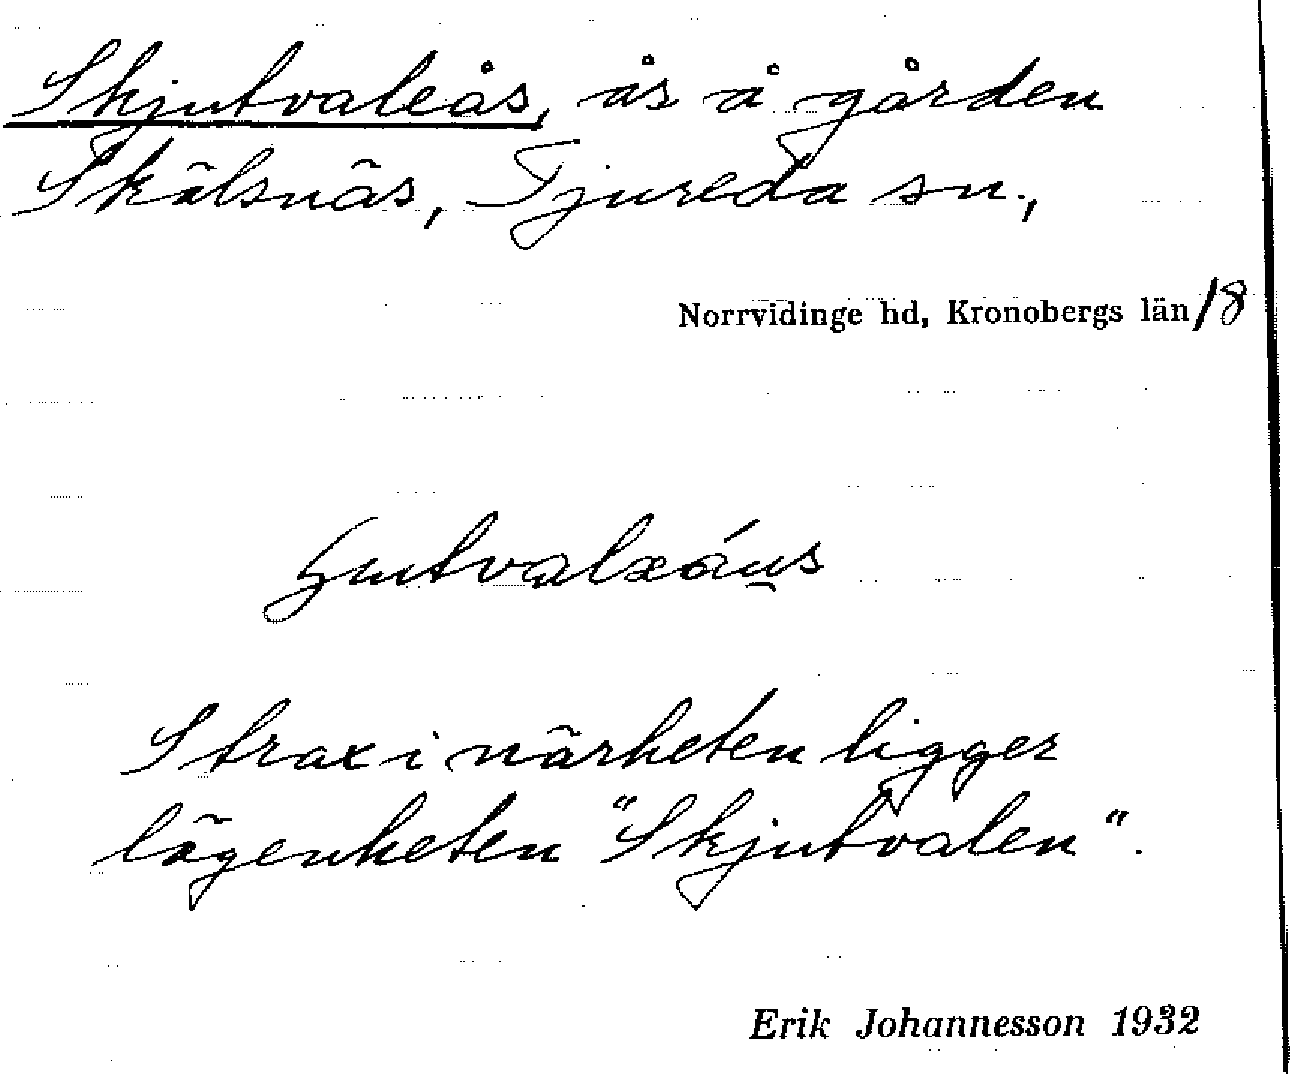 Skjutvaleås, ås å gården
Skälsnäs, Tjureda sn.,
Norrvidinge hd, Kronobergs län 18
Strax i närheten ligger
lägenheten "Skjutvalen".
Erik Johannesson 1932